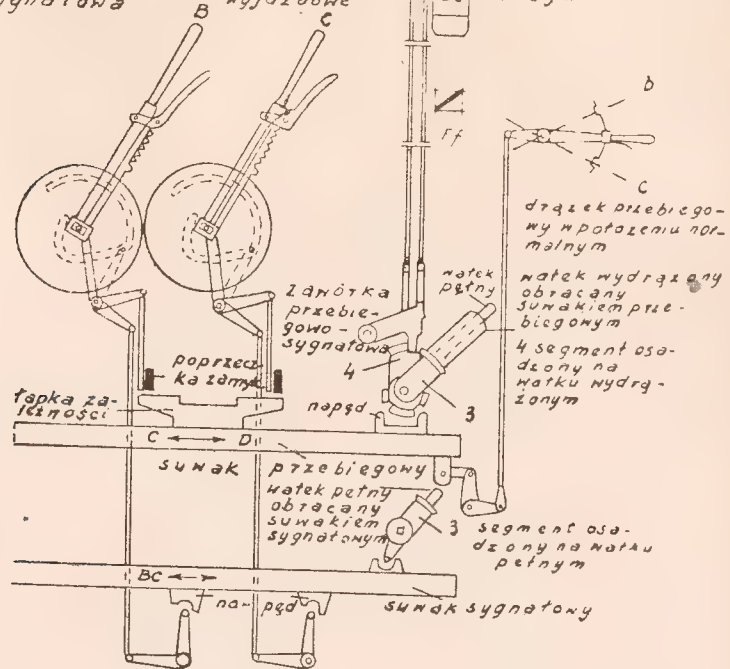 B
C
Ff
b
C
drążek przebiego-
wy w położeniu nor-
malnym
wałek
pełny
wałek wydrążony
obracany
suwakiem prze-
biegowym
4 segment osa-
dzony na
wałku wydrą-
żonym
zawórka
przebie-
gowo-
sygnałowa
4
3
poprzecz-
ka zamyk
łapka za-
leżności
napęd
C ↔ D
suwak przebiegowy
wałek pełny
obracany
suwakiem
sygnałowym
3
segment osa-
dzony na wałku
pełnym
BC ↔
napęd
suwak sygnałowy